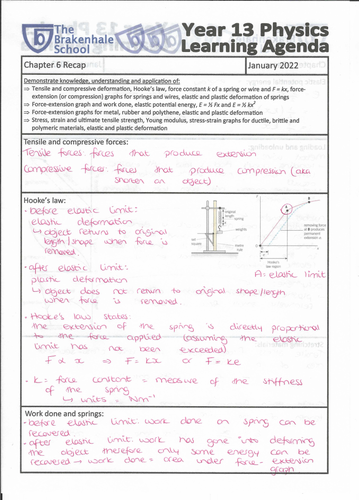 The
Brakenhale
School
Year 13 Physics
Learning Agenda
Chapter 6 Recap
January 2022
Demonstrate knowledge, understanding and application of:
⇒ Tensile and compressive deformation, Hooke's law, force constant k of a spring or wire and F = kx, force-
extension (or compression) graphs for springs and wires, elastic and plastic deformation of springs
⇒ Force-extension graph and work done, elastic potential energy, E = ½ Fx and E = ½ kx²
⇒ Force-extension graphs for metal, rubber and polythene, elastic and plastic deformation
⇒ Stress, strain and ultimate tensile strength, Young modulus, stress-strain graphs for ductile, brittle and
polymeric materials, elastic and plastic deformation
Tensile and compressive forces:
Tensile forces: forces that produce extension
Compressive forces: forces that produce compression (aka
shorten an object)
Hooke's law:
- before elastic limit:
elastic deformation
↳ object returns to original
length/shape when force is
removed.
- after elastic limit:
plastic deformation
↳ object does not return to original shape/length
when force is removed.
A: elastic limit
- Hooke's law states:
the extension of the spring is directly proportional
to the force applied (assuming the elastic
limit has not been exceeded)
F ∝ x ⇒ F = kx or F = ke
- k = force constant = measure of the stiffness
of the spring
↳ units = Nm⁻¹
Work done and springs:
- before elastic limit work done on spring can be
recovered
- after elastic limit work has gone into deforming
the object therefore only some energy can be
recovered → work done = area under force-extension
graph